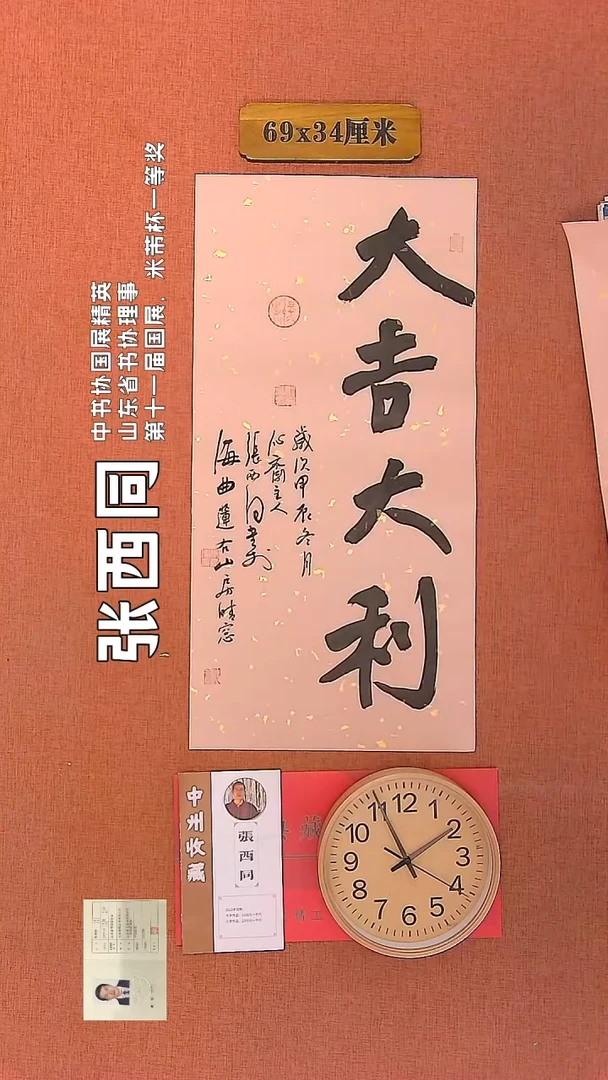 69x34厘米
大吉大利
歲次甲辰冬月
心齋主人
張西同書於
海曲蓮右山房晴窓
中书协国展精英
山东省书协理事
第十一届国展，米芾杯一等奖
张西同
張西同
藏
精工
12
1
2
3
4
5
6
7
8
9
10
11